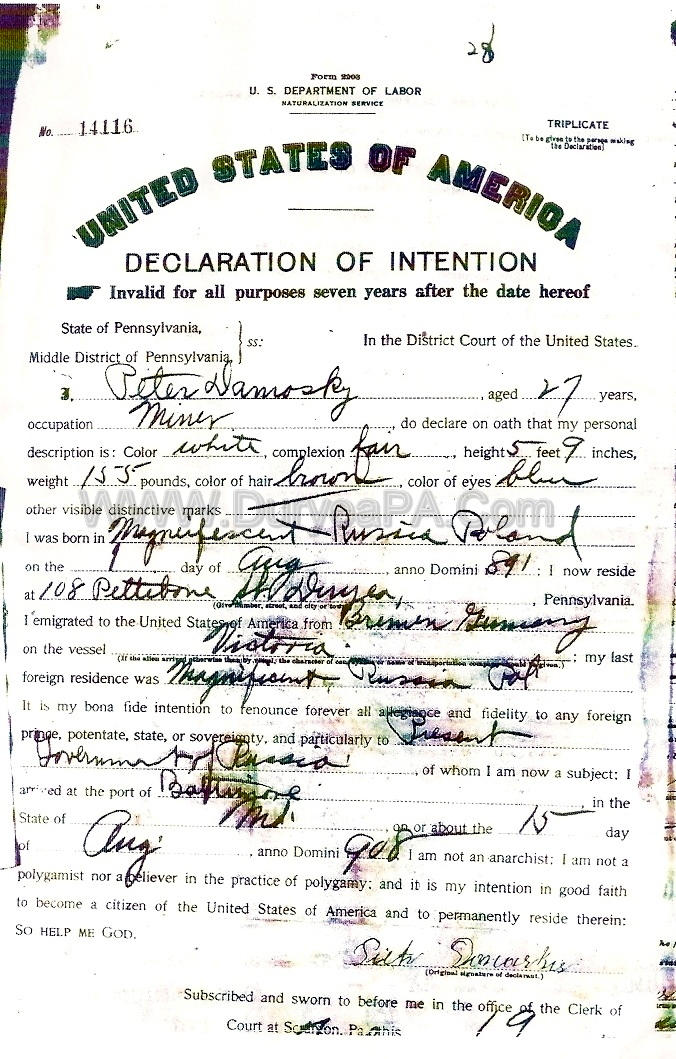 28
Form 2203
U. S. DEPARTMENT OF LABOR
NATURALIZATION SERVICE
No. 14116
TRIPLICATE
(To be given to the person making the Declaration)
UNITED STATES OF AMERICA
DECLARATION OF INTENTION
Invalid for all purposes seven years after the date hereof
State of Pennsylvania,
Middle District of Pennsylvania, ss:
In the District Court of the United States.
I, Peter Damosky, aged 27 years,
occupation Miner, do declare on oath that my personal
description is: Color white, complexion fair, height 5 feet 9 inches,
weight 155 pounds, color of hair brown, color of eyes blue
other visible distinctive marks
www.DuryeaPA.Com
I was born in Magnifescent Russia Poland
on the 1 day of Aug, anno Domini 891 : I now reside
at 108 Pettebone St Duryea, Pennsylvania.
(Give number, street, and city or town)
I emigrated to the United States of America from Bremen Germany
on the vessel Victoria ; my last
(If the alien arrived otherwise than by vessel, the character of conveyance or name of transportation company should be given.)
foreign residence was Magnificent, Russia Pol
It is my bona fide intention to renounce forever all allegiance and fidelity to any foreign
prince, potentate, state, or sovereignty, and particularly to Present
Government of Russia, of whom I am now a subject; I
arrived at the port of Baltimore, in the
State of Md., on or about the 15 day
of Aug., anno Domini 908 I am not an anarchist; I am not a
polygamist nor a believer in the practice of polygamy; and it is my intention in good faith
to become a citizen of the United States of America and to permanently reside therein:
SO HELP ME GOD.
(Original signature of declarant.)
Subscribed and sworn to before me in the office of the Clerk of
Court at Scranton, Pa. this 19